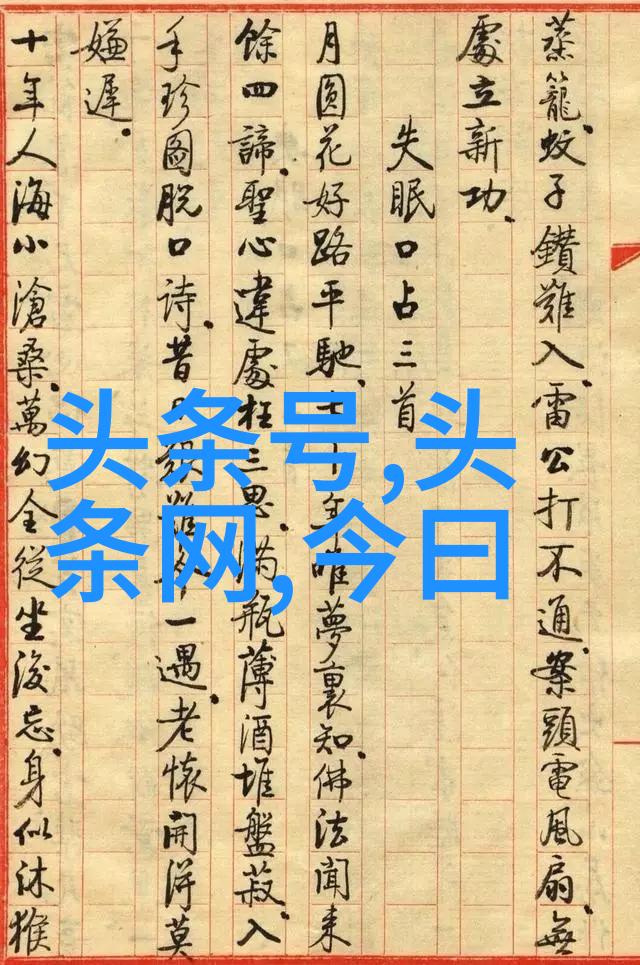 蒸籠.蚊子鑽難入.雷公打不通.案頭電風扇.無
處立新功.
失眠口占三首
月圓花好路平馳.七十年唯夢裏知.佛法聞來
餘四諦.聖心違處枉三思.滿瓶薄酒堆盤菽.入
手珍圖脫口詩.昔難一遇.老懷開得莫
嫌遲.
十年人海小滄桑.萬幻全從坐後忘.身似沐猴
头条号,头
条网,今曰